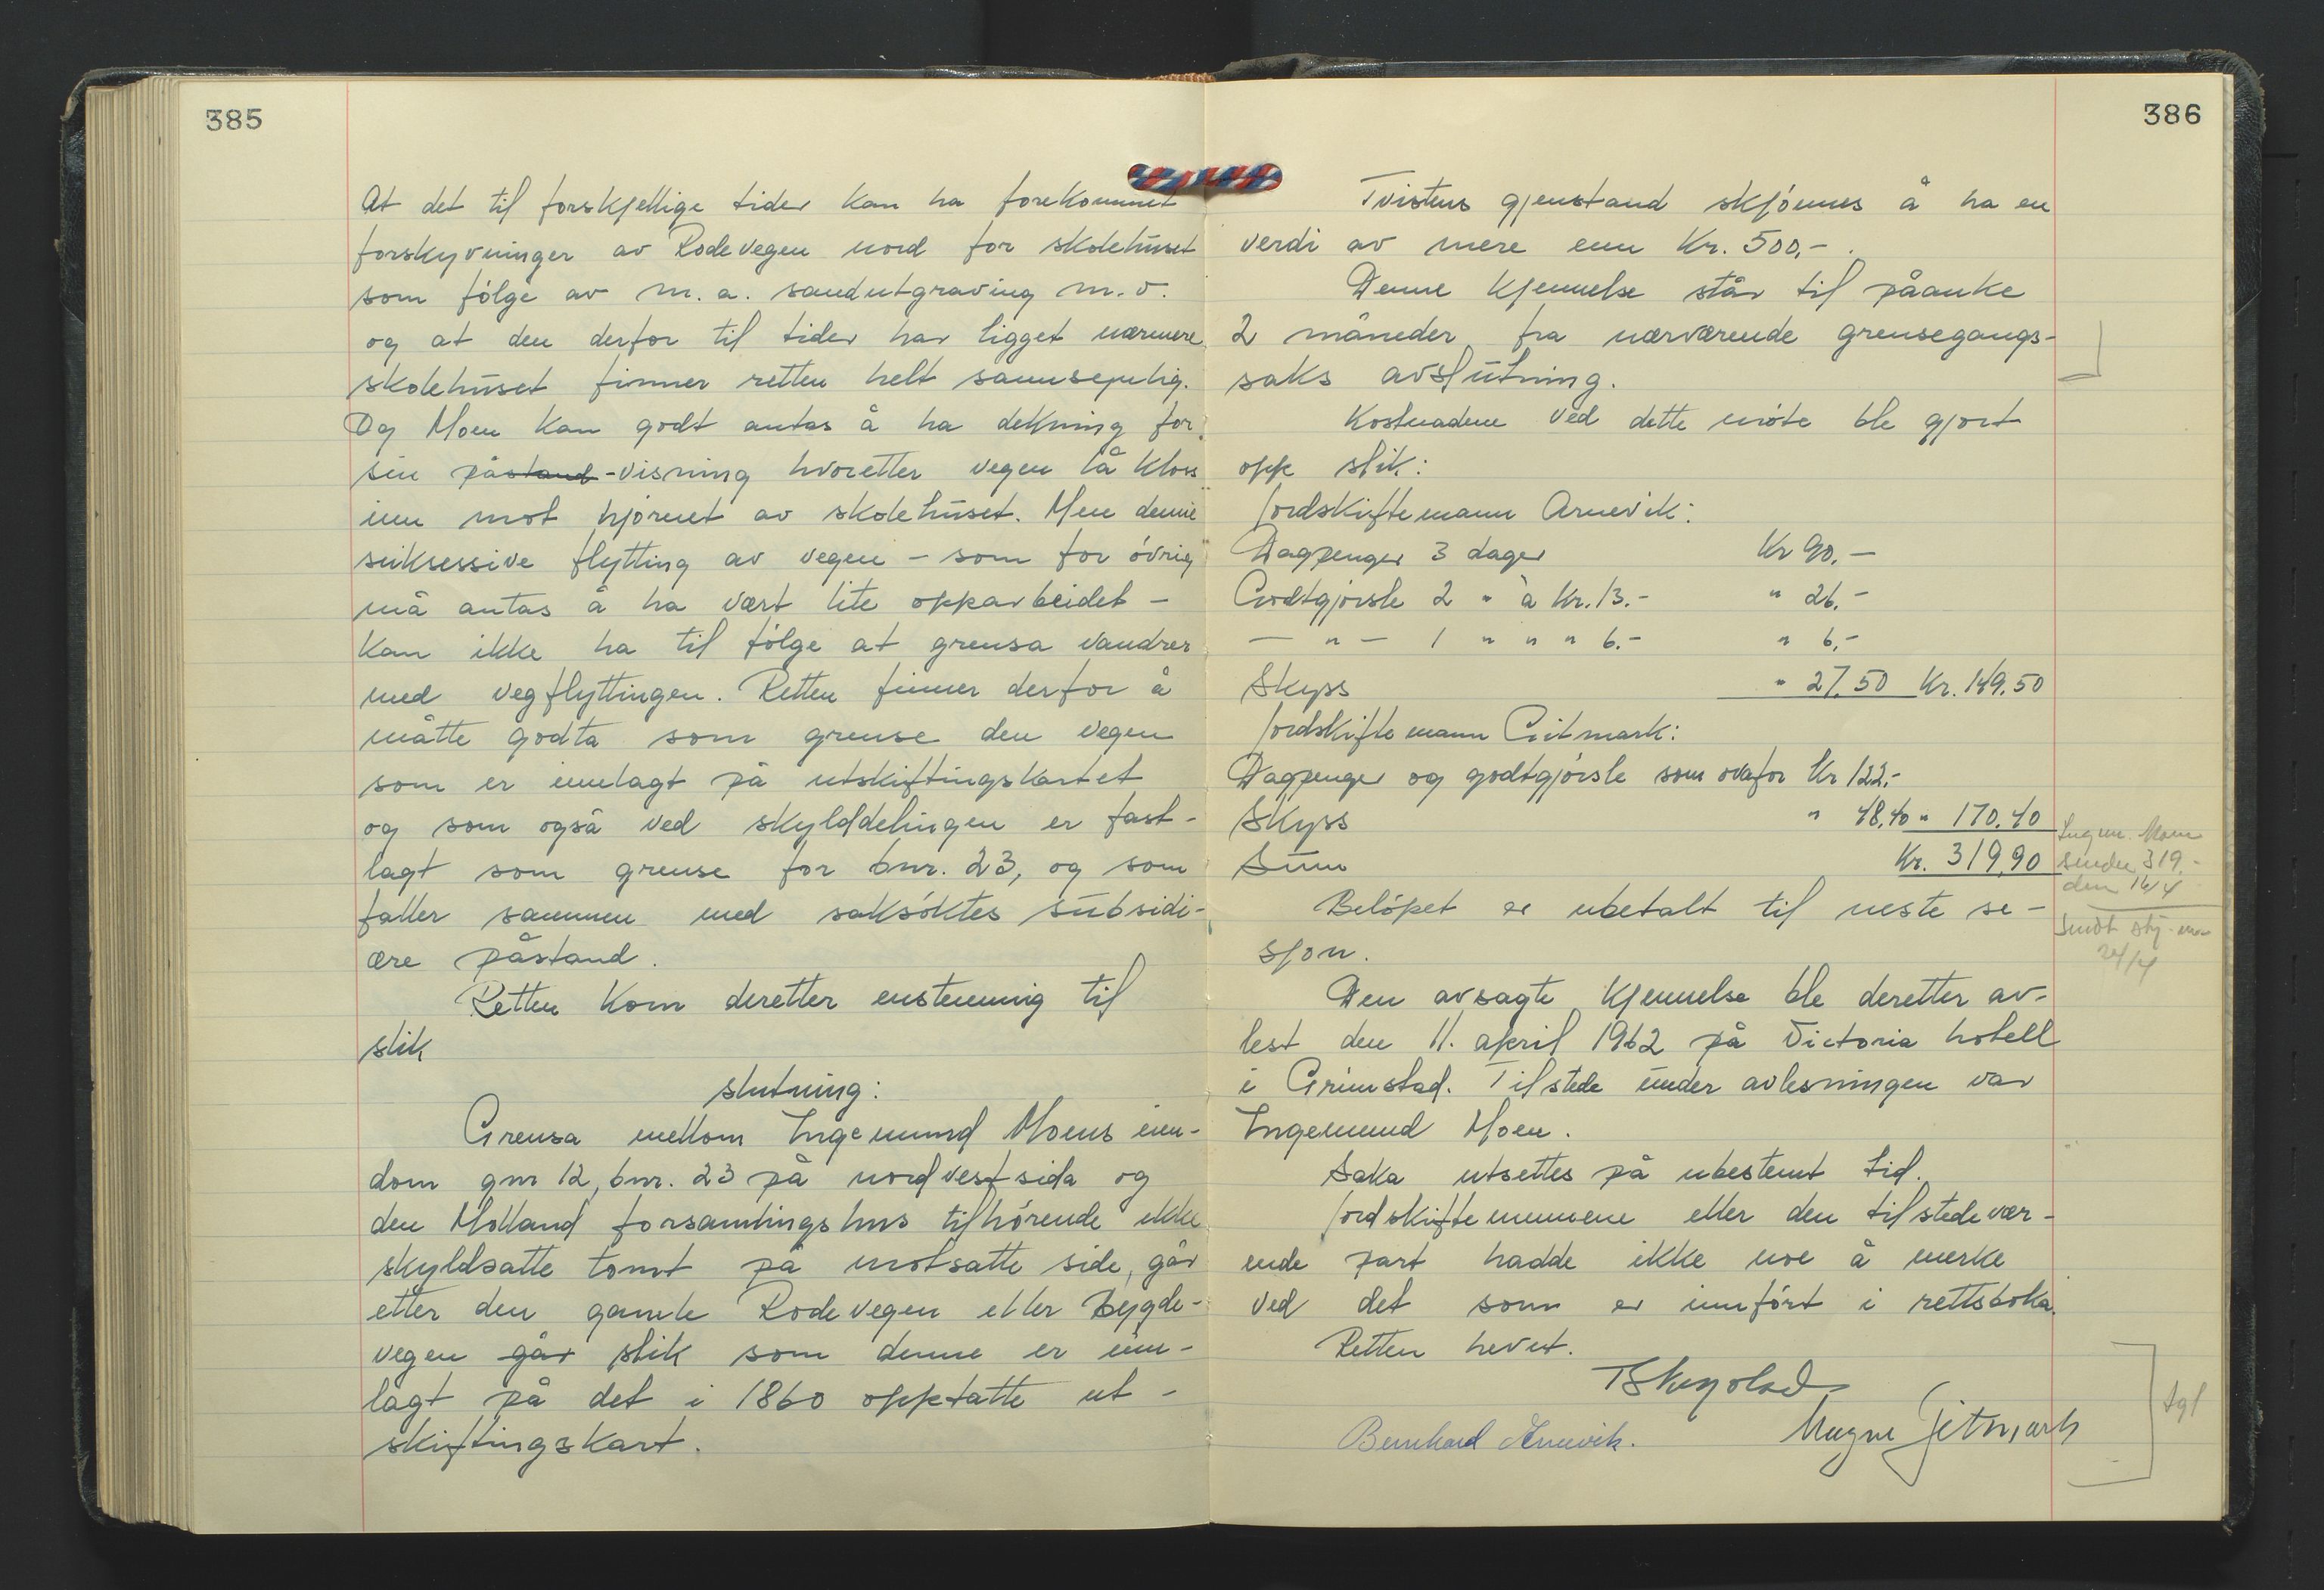 385
At det til forskjellige tider kan ha forekommet
forskyvninger av Rodevegen nord for skolehuset
som følge av m.a. sandutgraving m.v.
og at den derfor til tider har ligget nærmere
skolehuset finner retten helt sannsynlig.
Og Moen kan godt antas å ha dekning for
sin påstand-visning hvoretter vegen lå kloss
inn mot hjørnet av skolehuset. Men denne
suksessive flytting av vegen – som for øvrig
må antas å ha vært lite opparbeidet –
kan ikke ha til følge at grensa vandrer
med vegflyttingen. Retten finner derfor å
måtte godta som grense den vegen
som er innlagt på utskiftingskartet
og som også ved skylddelingen er fast-
lagt som grense for bnr. 23, og som
faller sammen med saksøktes subsidi-
ære påstand.
Retten kom deretter enstemmig til
slik
slutning:
Grensa mellom Ingemund Moens eien-
dom gnr 12, bnr. 23 på nordvestsida og
den Molland forsamlingshus tilhørende ikke
skyldsatte tomt på motsatte side, går
etter den gamle Rodevegen eller bygde-
vegen går slik som denne er inn-
lagt på det i 1860 opptatte ut-
skiftingskart.
386
Tvistens gjenstand skjønnes å ha en
verdi av mere enn Kr. 500,-.
Denne kjennelse står til påanke
2 måneder fra nærværende grensegangs-
saks avslutning.
Kostnadene ved dette møte ble gjort
opp slik:
Jordskiftemann Arnevik:
Dagpenger 3 dager Kr 90,-
Godtgjørsle 2 " à Kr. 13.- " 26,-
— " — 1 " " " 6.- " 6,-
Skyss " 27.50 Kr. 149.50
Jordskiftemann Gitmark:
Dagpenger og godtgjørsle som ovafor Kr 122.-
Skyss " 48,40 " 170.40
Sum Kr. 319,90
Ingem. Moen
sender 319.-
den 14/4
Sendt
24/4
Beløpet er ubetalt til neste se-
sjon.
Den avsagte kjennelse ble deretter av-
lest den 11. april 1962 på Victoria hotell
i Grimstad. Tilstede under avlesningen var
Ingemund Moen.
Saka utsettes på ubestemt tid.
Jordskiftemennene eller den tilstedevær-
ende part hadde ikke noe å merke
ved det som er innført i rettsboka.
Retten hevet.
Bernhard Arnevik.
Magne Gitmark